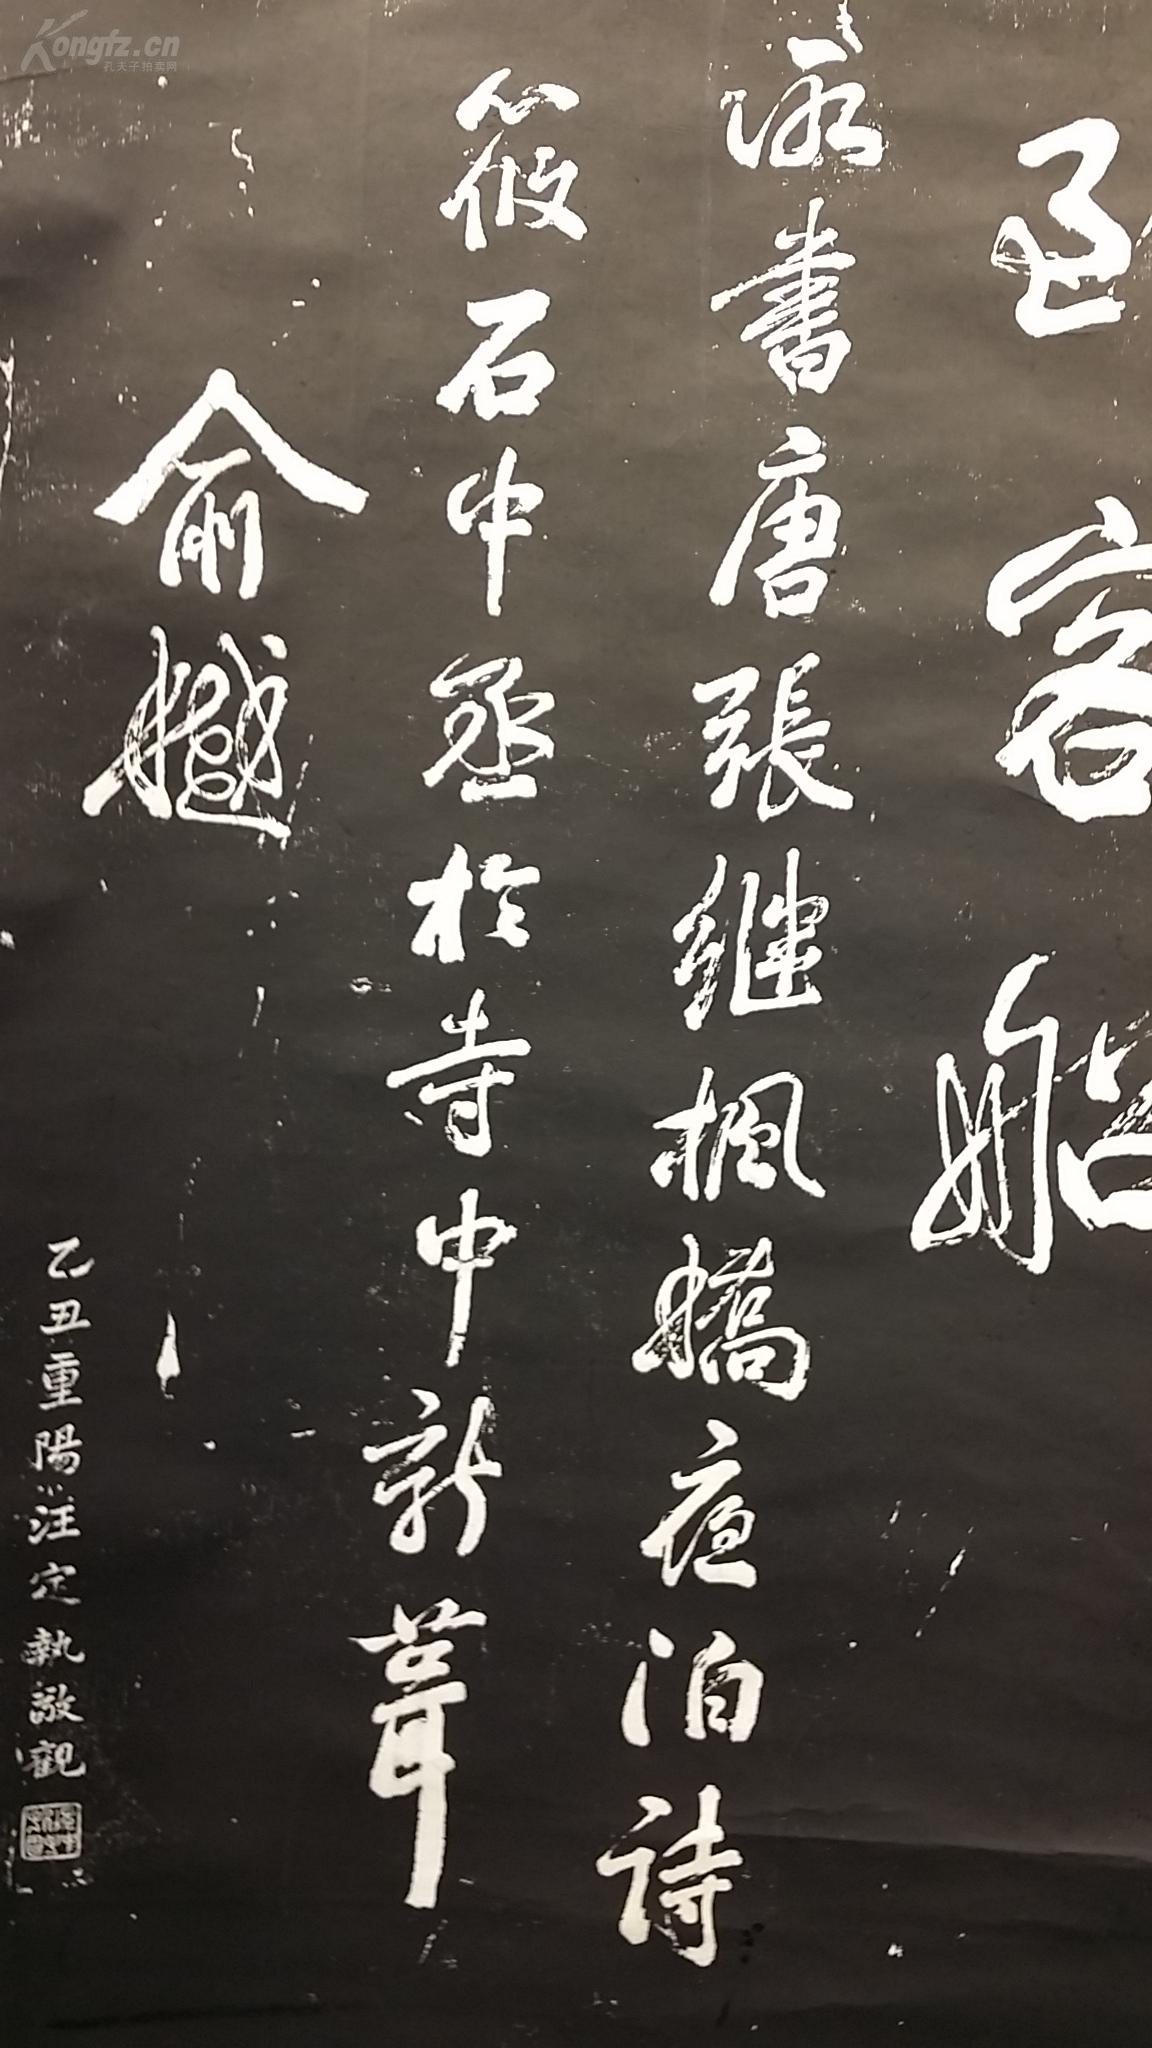 到客船
書唐張继楓橋夜泊詩
筱石中丞於寺中新葺
俞樾
乙丑重陽汪定執敬觀
Kongfz.cn
孔夫子拍卖网